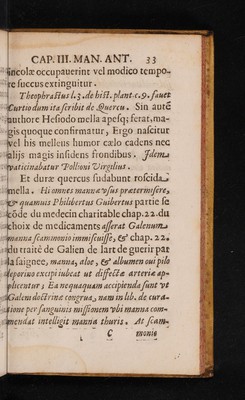 CAP. III. MAN. ANT. 33
incolæ occupauerint vel modico tempo-
re succus extinguitur.
Theophrastus l. 3. de hist. plant. c. 9. fauet
Curtio dum ita scribit de Quercu. Sin autē
authore Hesiodo mella apesq; ferat, ma-
gis quoque confirmatur, Ergo nascitur
vel his melleus humor cælo cadens nec
alijs magis insidens frondibus. Idem
vaticinabatur Pollioni Virgilius.
Et duræ quercus sudabunt roscida
mella. Hi omnes manna vsus prætermisere,
& quamuis Philibertus Guibertus partie se
cōde du medecin charitable chap. 22. du
choix de medicaments asserat Galenum
manna scammonio immiscuisse, & chap. 22.
du traité de Galien de lart de guerir par
la saignee, manna, aloe, & albumen oui pilo
leporino excipi iubeat ut dissectæ arteriæ ap-
plicentur; Ea nequaquam accipienda sunt vt
Galeni doctrina congrua, nam in lib. de cura-
tione per sanguinis missionem vbi manna com-
mendat intelligit manna thuris. At scam-
C monio